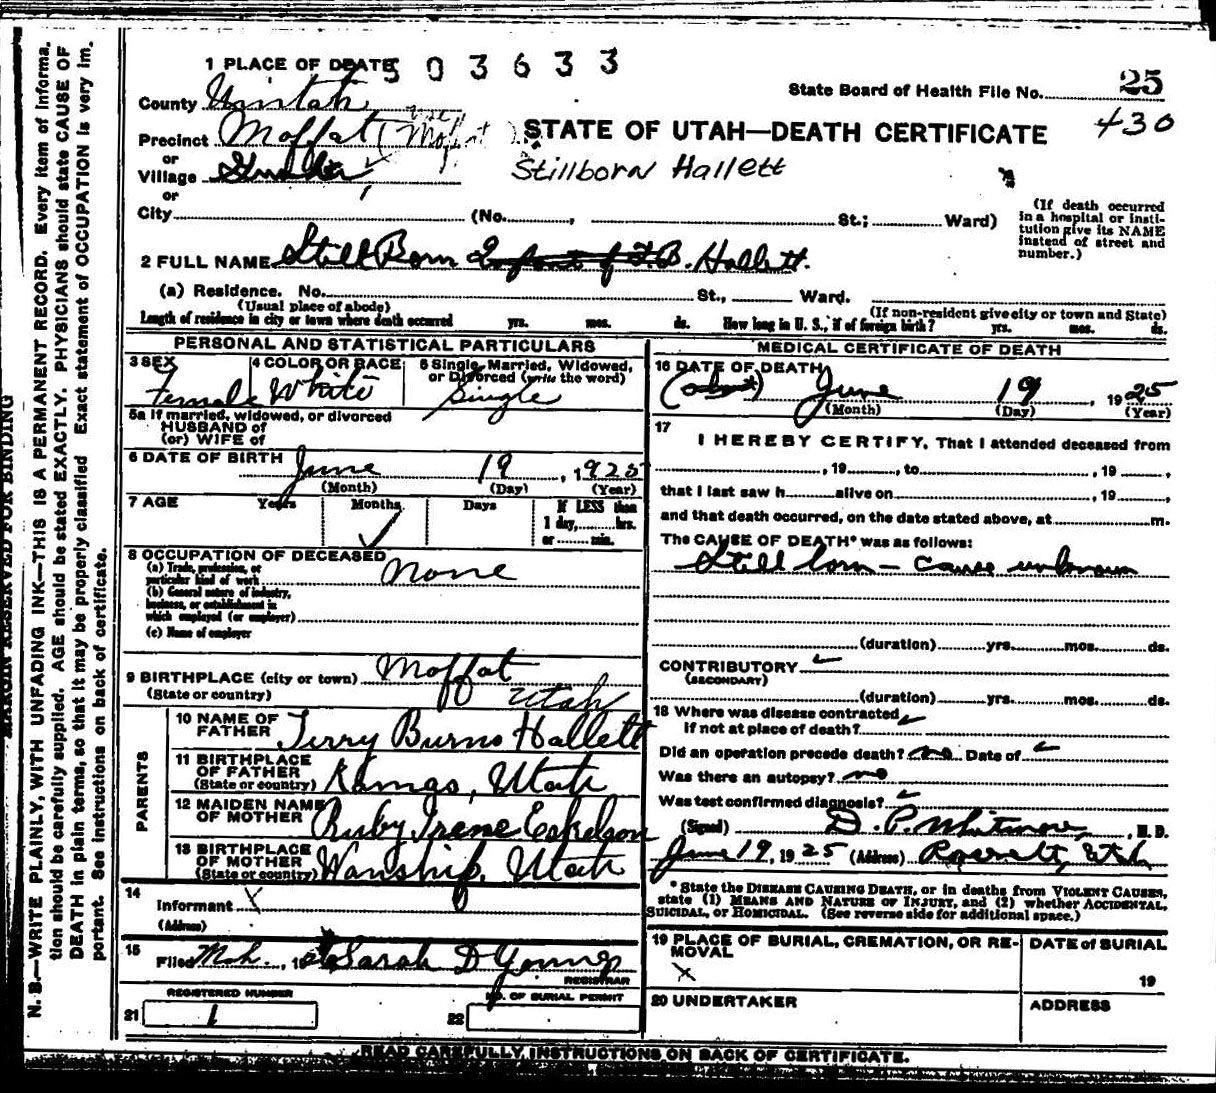 MARGIN RESERVED FOR BINDING
N. B.—WRITE PLAINLY, WITH UNFADING INK—THIS IS A PERMANENT RECORD. Every item of informa-
tion should be carefully supplied. AGE should be stated EXACTLY. PHYSICIANS should state CAUSE OF
DEATH in plain terms, so that it may be properly classified. Exact statement of OCCUPATION is very im-
portant. See instructions on back of certificate.
1 PLACE OF DEATH 503633
State Board of Health File No. 25
430
County Uintah
Precinct Moffat (Moffat)
STATE OF UTAH—DEATH CERTIFICATE
or
Village
Stillborn Hallett
or
City (No. , St.; Ward)
(If death occurred
in a hospital or insti-
tution give its NAME
instead of street and
number.)
2 FULL NAME Still Born Infant of T.B. Hallett.
(a) Residence. No. St., Ward.
(Usual place of abode) (If non-resident give city or town and State)
Length of residence in city or town where death occurred yrs. mos. ds. How long in U. S., if of foreign birth? yrs. mos. ds.
PERSONAL AND STATISTICAL PARTICULARS
3 SEX 4 COLOR OR RACE 5 Single, Married, Widowed,
or Divorced (write the word)
Female White Single
5a If married, widowed, or divorced
HUSBAND of
(or) WIFE of
6 DATE OF BIRTH June 19, 1925
(Month) (Day) (Year)
7 AGE Years Months Days If LESS than
1 day, hrs.
or min.
8 OCCUPATION OF DECEASED none
(a) Trade, profession, or
particular kind of work
(b) General nature of industry,
business, or establishment in
which employed (or employer)
(c) Name of employer
9 BIRTHPLACE (city or town) Moffat
(State or country) Utah
PARENTS
10 NAME OF
FATHER Terry Burns Hallett
11 BIRTHPLACE
OF FATHER
(State or country) Kamas, Utah
12 MAIDEN NAME
OF MOTHER Ruby Irene Eskelson
13 BIRTHPLACE
OF MOTHER
(State or country) Wanship, Utah
14
Informant X
(Address)
15
Filed Mch. , 19 Sarah D Young
REGISTRAR
REGISTERED NUMBER NO. OF BURIAL PERMIT
21 1 22
MEDICAL CERTIFICATE OF DEATH
16 DATE OF DEATH
(about) June 19, 1925
(Month) (Day) (Year)
17
I HEREBY CERTIFY, That I attended deceased from
, 19 , to , 19 ,
that I last saw h alive on , 19 ,
and that death occurred, on the date stated above, at m.
The CAUSE OF DEATH* was as follows:
Still born - cause unknown
(duration) yrs. mos. ds.
CONTRIBUTORY
(SECONDARY)
(duration) yrs. mos. ds.
18 Where was disease contracted
if not at place of death?
Did an operation precede death? no Date of
Was there an autopsy? no
Was test confirmed diagnosis?
(Signed) D. P. Whitmore, M. D.
June 19, 1925 (Address) Roosevelt, Utah
*State the DISEASE CAUSING DEATH, or in deaths from VIOLENT CAUSES,
state (1) MEANS AND NATURE OF INJURY, and (2) whether ACCIDENTAL,
SUICIDAL, or HOMICIDAL. (See reverse side for additional space.)
19 PLACE OF BURIAL, CREMATION, OR RE-
MOVAL
X
DATE of BURIAL
19
20 UNDERTAKER ADDRESS
READ CAREFULLY, INSTRUCTIONS ON BACK OF CERTIFICATE.